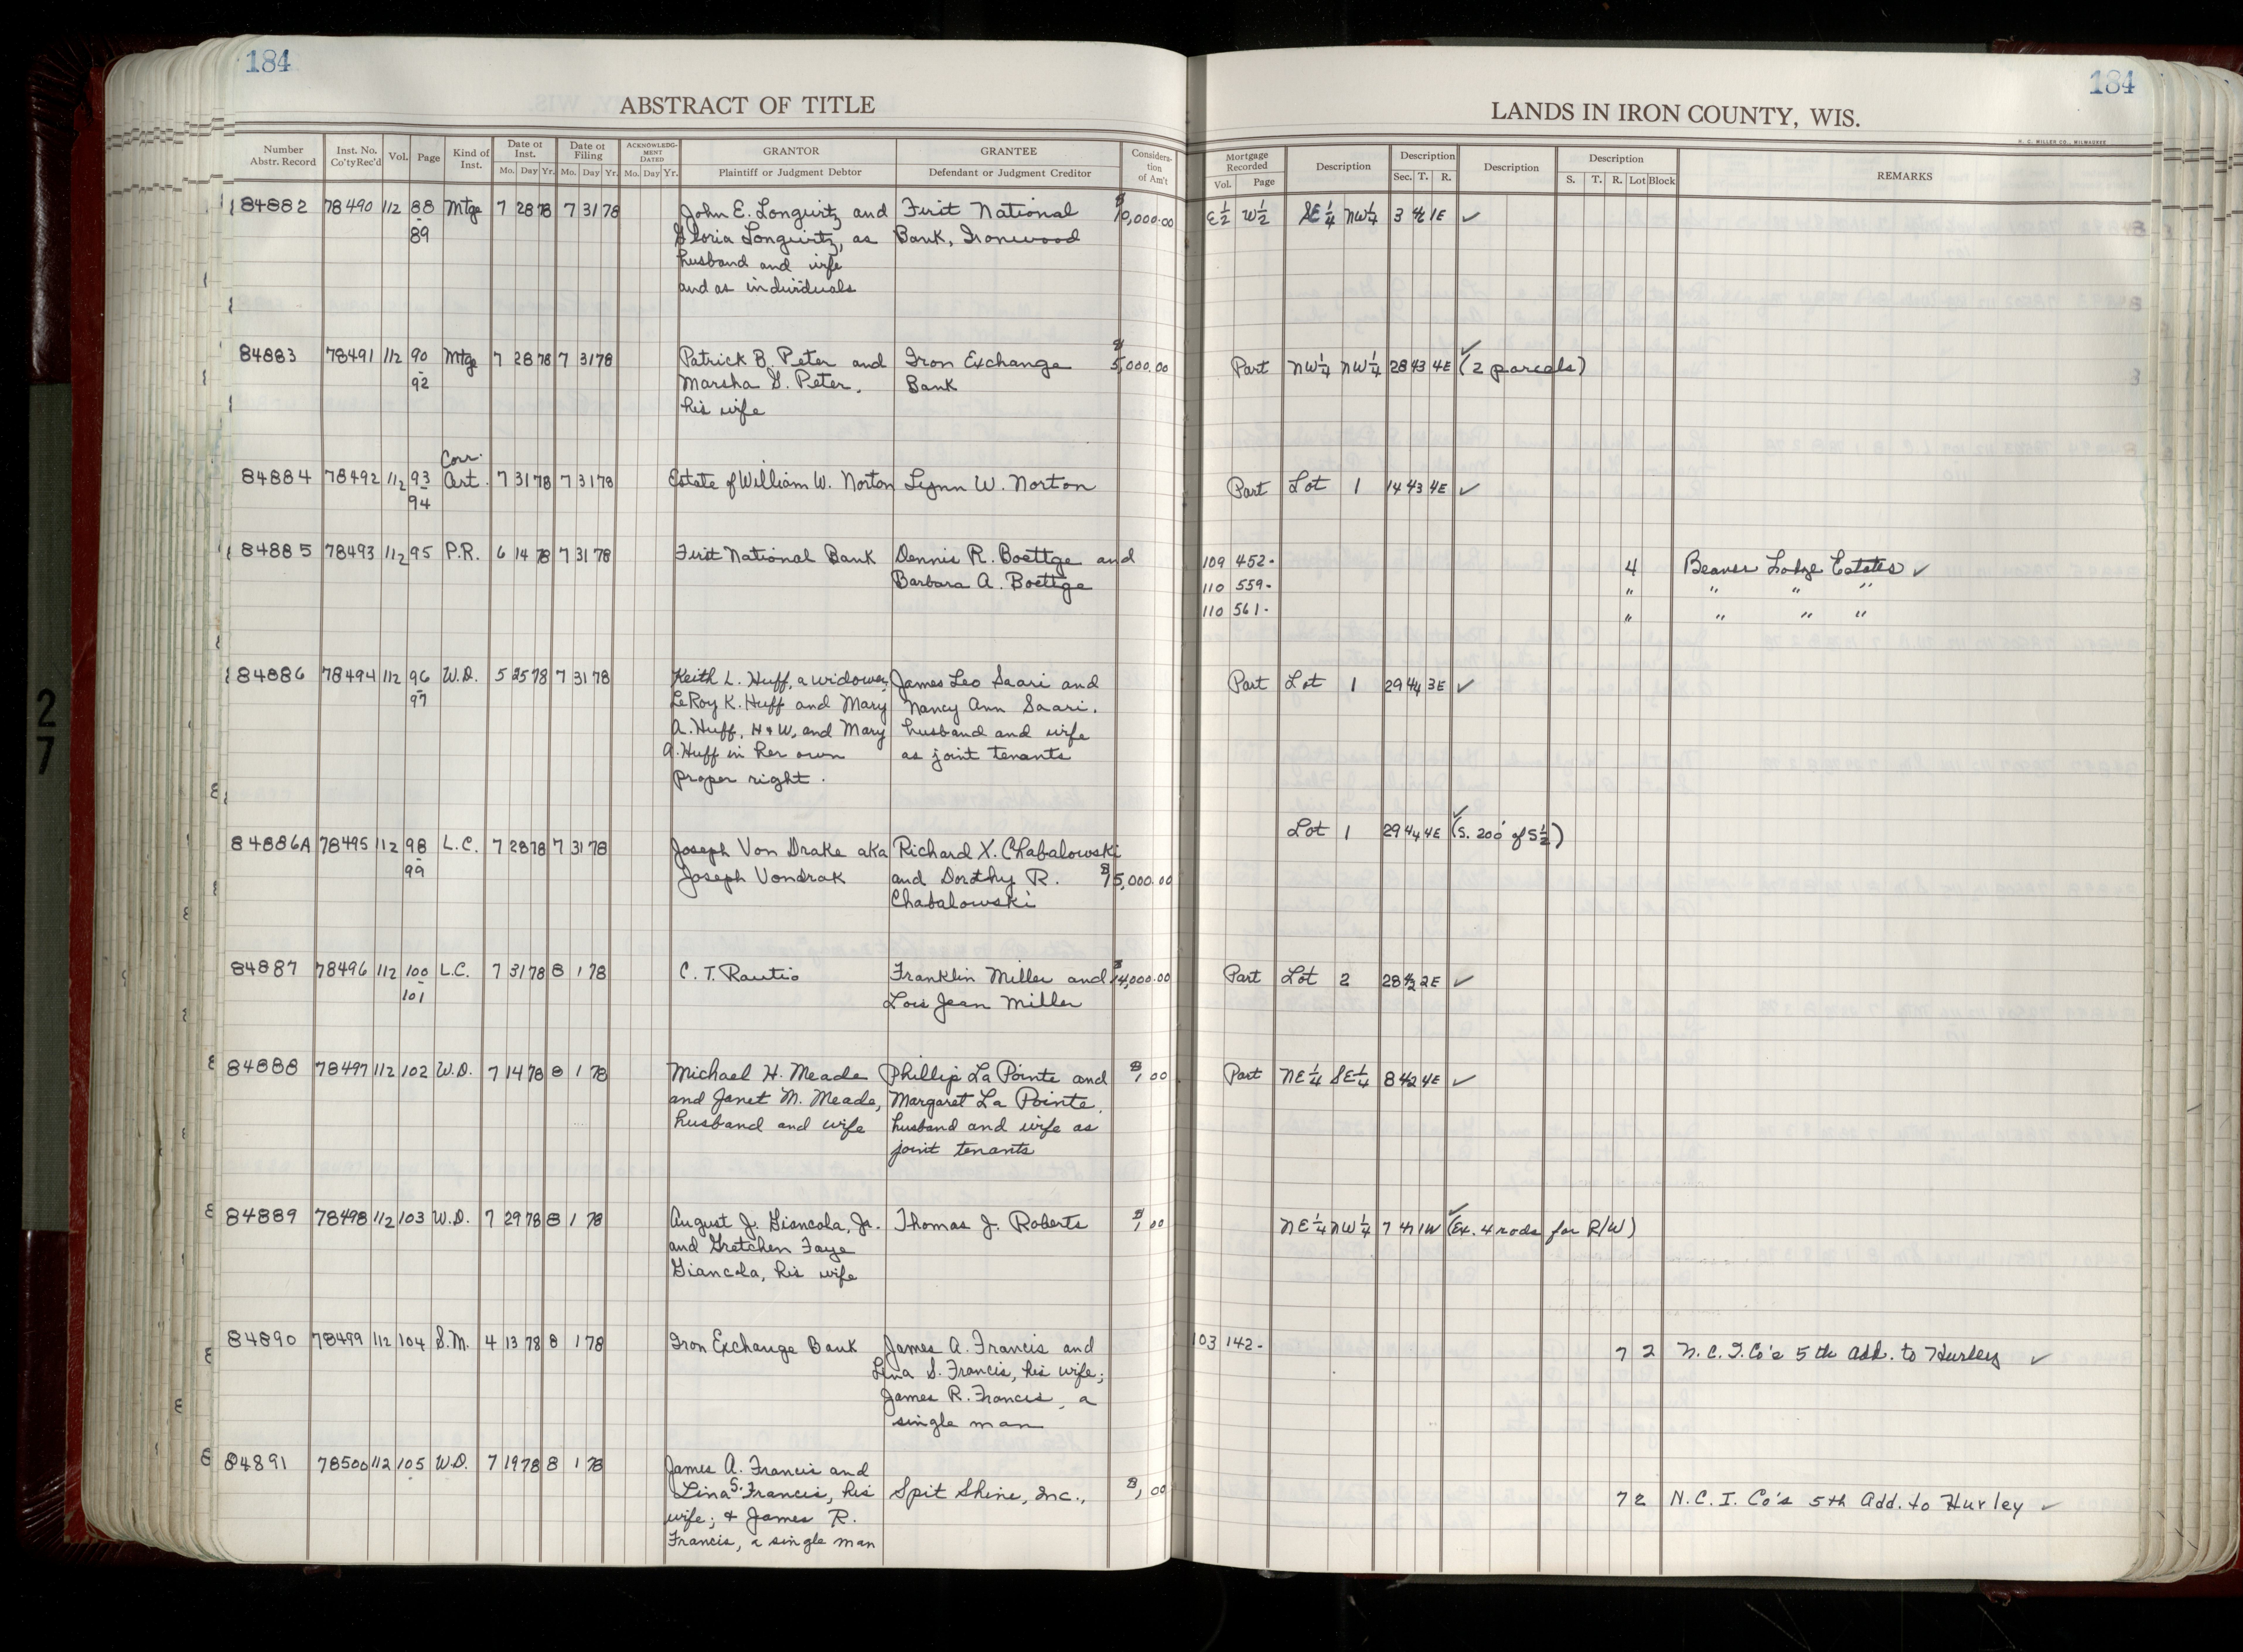 184
184
ABSTRACT OF TITLE
LANDS IN IRON COUNTY, WIS.
H. C. MILLER CO., MILWAUKEE
Number Abstr. Record
Inst. No. Co'ty Rec'd
Vol.
Page
Kind of Inst.
Date of Inst.
Mo. Day Yr.
Date of Filing
Mo. Day Yr.
ACKNOWLEDGMENT DATED
Mo. Day Yr.
GRANTOR
Plaintiff or Judgment Debtor
GRANTEE
Defendant or Judgment Creditor
Consideration of Am't
Mortgage Recorded
Vol. Page
Description
Description
Sec. T. R.
Description
Description
S. T. R. Lot Block
REMARKS
84882 78490 112 88 Mtge 7 28 78 7 31 78 John E. Longwitz and First National $10,000.00 E½ W½ SE¼ NW¼ 3 42 1E ✓
-89 Gloria Longwitz, as Bank, Ironwood
husband and wife
and as individuals
84883 78491 112 90 Mtge 7 28 78 7 31 78 Patrick B. Peter and Iron Exchange $5,000.00 Part NW¼ NW¼ 28 43 4E ✓ (2 parcels)
-92 Marsha G. Peter, Bank
his wife
Corr.
84884 78492 112 93 Cert. 7 31 78 7 31 78 Estate of William W. Norton Lynn W. Norton Part Lot 1 14 43 4E ✓
-94
84885 78493 112 95 P.R. 6 14 78 7 31 78 First National Bank Dennis R. Boettge and 109 452- 4 Beaver Lodge Estates ✓
Barbara A. Boettge 110 559- " " " "
110 561- " " " "
84886 78494 112 96 W.D. 5 25 78 7 31 78 Keith L. Huff, a widower, James Leo Saari and Part Lot 1 29 44 3E ✓
-97 LeRoy K. Huff and Mary Nancy Ann Saari,
A. Huff, H+W, and Mary husband and wife
A. Huff in her own as joint tenants
proper right.
84886A 78495 112 98 L.C. 7 28 78 7 31 78 Joseph Von Drake aka Richard X. Chabalowski Lot 1 29 44 4E ✓ (S. 200' of S½)
-99 Joseph Vondrak and Dorothy R. $15,000.00
Chabalowski
84887 78496 112 100 L.C. 7 31 78 8 1 78 C. T. Rautio Franklin Miller and $14,000.00 Part Lot 2 28 42 2E ✓
-101 Lois Jean Miller
84888 78497 112 102 W.D. 7 14 78 8 1 78 Michael H. Meade Phillip La Pointe and $1.00 Part NE¼ SE¼ 8 42 4E ✓
and Janet M. Meade, Margaret La Pointe,
husband and wife husband and wife as
joint tenants
84889 78498 112 103 W.D. 7 29 78 8 1 78 August J. Giancola, Jr. Thomas J. Roberts $1.00 NE¼ NW¼ 7 41 1W ✓ (Ex. 4 rods for R/W)
and Gretchen Faye
Giancola, his wife
84890 78499 112 104 S.M. 4 13 78 8 1 78 Iron Exchange Bank James A. Francis and 103 142- 7 2 N.C.I. Co's 5th Add. to Hurley ✓
Lina S. Francis, his wife;
James R. Francis, a
single man
84891 78500 112 105 W.D. 7 19 78 8 1 78 James A. Francis and
Lina S. Francis, his Spit Shine, Inc., $1.00 7 2 N.C.I. Co's 5th Add. to Hurley ✓
wife; + James R.
Francis, a single man
27